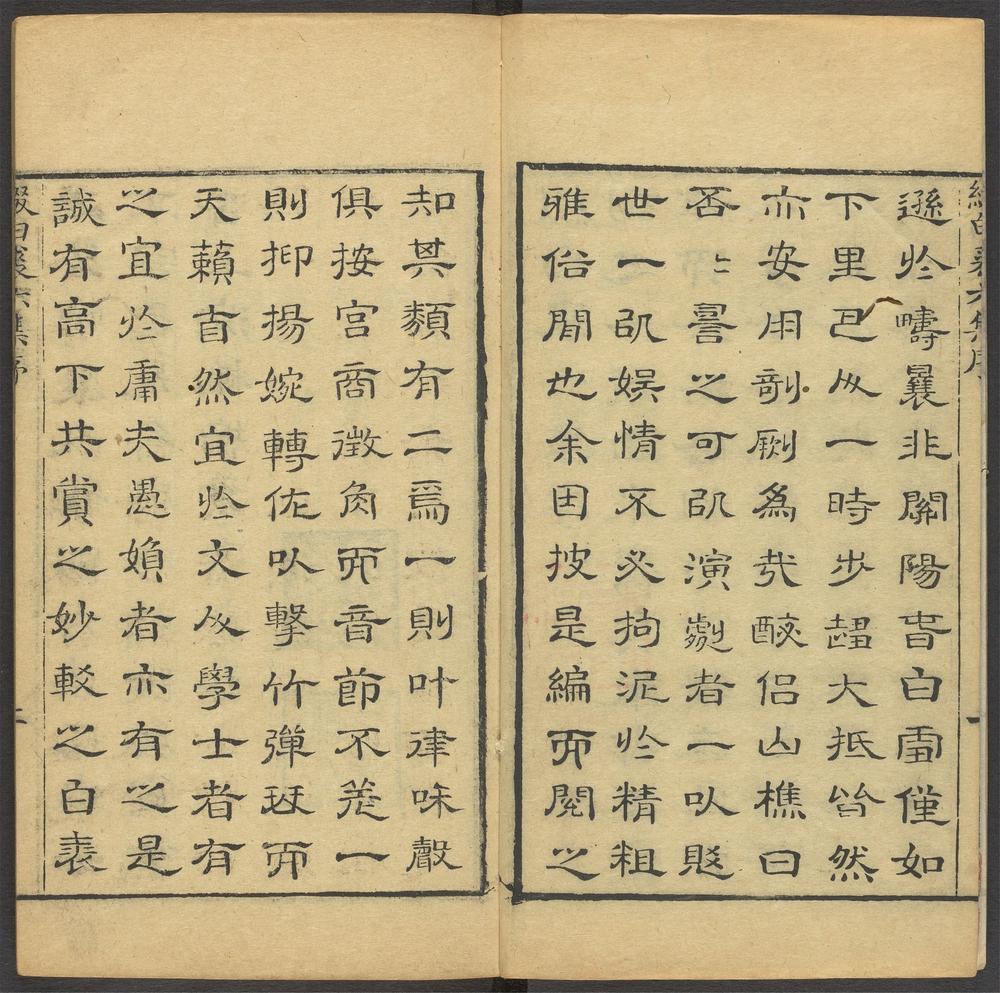 遜於疇曩非關陽春白雪僅如
下里巴人一時步趨大抵皆然
亦安用剞劂為哉酸侶山樵曰
否否譬之可以演劇者一以賤
世一以娛情不必拘泥於精粗
雅俗間也余因披是編而閱之
知其類有二焉一則叶律咊聲
俱按宮商徵角而音節不差一
則抑揚婉轉佐以擊竹彈瑟而
天籟自然宜於文人學士者有
之宜於庸夫愚婦者亦有之是
誠有高下共賞之妙較之白裘
綴白裘六集序
一
綴白裘六集序
二